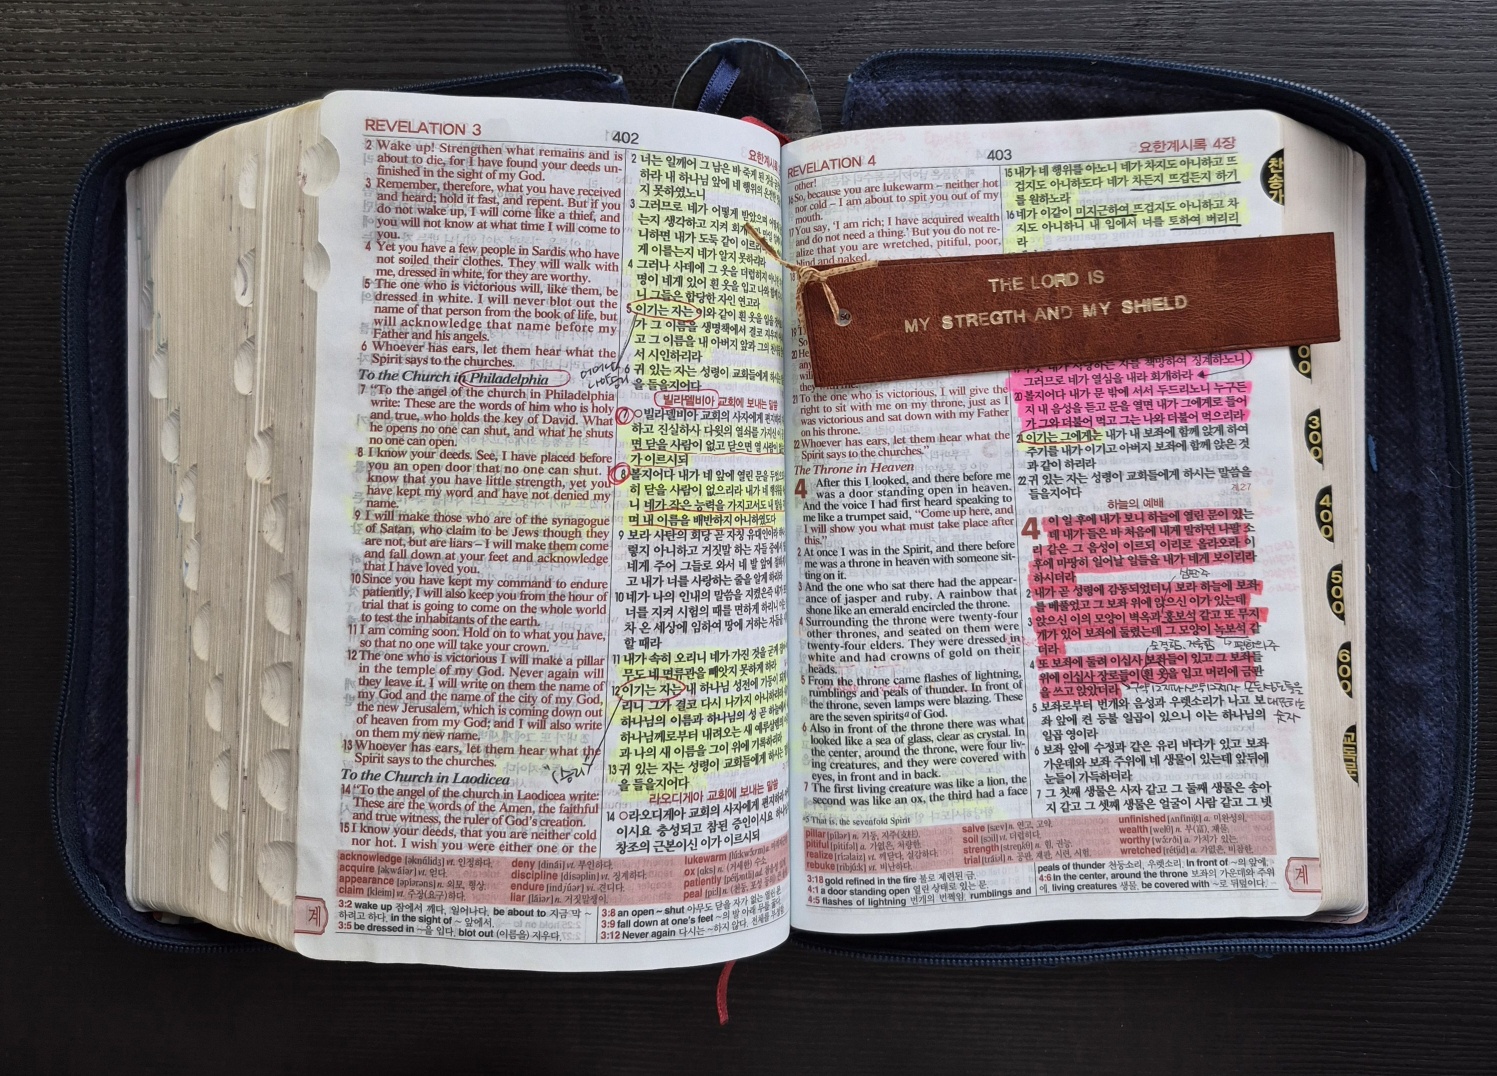 REVELATION 3
402
요한계시록
2 Wake up! Strengthen what remains and is
about to die, for I have found your deeds un-
finished in the sight of my God.
3 Remember, therefore, what you have received
and heard; hold it fast, and repent. But if you
do not wake up, I will come like a thief, and
you will not know at what time I will come to
you.
4 Yet you have a few people in Sardis who have
not soiled their clothes. They will walk with
me, dressed in white, for they are worthy.
5 The one who is victorious will, like them, be
dressed in white. I will never blot out the
name of that person from the book of life, but
will acknowledge that name before my
Father and his angels.
6 Whoever has ears, let them hear what the
Spirit says to the churches.
To the Church in Philadelphia
7 "To the angel of the church in Philadelphia
write: These are the words of him who is holy
and true, who holds the key of David. What
he opens no one can shut, and what he shuts
no one can open.
8 I know your deeds. See, I have placed before
you an open door that no one can shut. I
know that you have little strength, yet you
have kept my word and have not denied my
name.
9 I will make those who are of the synagogue
of Satan, who claim to be Jews though they
are not, but are liars – I will make them come
and fall down at your feet and acknowledge
that I have loved you.
10 Since you have kept my command to endure
patiently, I will also keep you from the hour of
trial that is going to come on the whole world
to test the inhabitants of the earth.
11 I am coming soon. Hold on to what you have,
so that no one will take your crown.
12 The one who is victorious I will make a pillar
in the temple of my God. Never again will
they leave it. I will write on them the name of
my God and the name of the city of my God,
the new Jerusalem, which is coming down out
of heaven from my God; and I will also write
on them my new name.
13 Whoever has ears, let them hear what the
Spirit says to the churches.
To the Church in Laodicea
14 "To the angel of the church in Laodicea write:
These are the words of the Amen, the faithful
and true witness, the ruler of God's creation.
15 I know your deeds, that you are neither cold
nor hot. I wish you were either one or the
2 너는 일깨어 그 남은 바 죽게 된 것을
하라 내 하나님 앞에 네 행위의 온전한
지 못하였노니
3 그러므로 네가 어떻게 받았으며
는지 생각하고 지켜 회개하라 만일
니하면 내가 도둑 같이 이르리니
게 이를는지 네가 알지 못하리라
4 그러나 사데에 그 옷을 더럽히지 아니
명이 네게 있어 흰 옷을 입고 나와 함께
니 그들은 합당한 자인 연고라
5 이기는 자는 이와 같이 흰 옷을 입을
가 그 이름을 생명책에서 결코 지우지
고 그 이름을 내 아버지 앞과 그의 천사들
서 시인하리라
6 귀 있는 자는 성령이 교회들에게 하시는
을 들을지어다
빌라델비아 교회에 보내는 말씀
7 ○빌라델비아 교회의 사자에게 편지하라
하고 진실하사 다윗의 열쇠를 가지신
면 닫을 사람이 없고 닫으면 열 사람이
가 이르시되
8 볼지어다 내가 네 앞에 열린 문을 두었으되
히 닫을 사람이 없으리라 내가 네 행위를
니 네가 작은 능력을 가지고서도 내
며 내 이름을 배반하지 아니하였도다
9 보라 사탄의 회당 곧 자칭 유대인이라
렇지 아니하고 거짓말 하는 자들 중에서
네게 주어 그들로 와서 네 발 앞에
고 내가 너를 사랑하는 줄을 알게 하리라
10 네가 나의 인내의 말씀을 지켰은즉
너를 지켜 시험의 때를 면하게 하리니
차 온 세상에 임하여 땅에 거하는 자들을
할 때라
11 내가 속히 오리니 네가 가진 것을 굳게
무도 네 면류관을 빼앗지 못하게 하라
12 이기는 자는 내 하나님 성전에 기둥이
리니 그가 결코 다시 나가지 아니하리라
하나님의 이름과 하나님의 성 곧 하늘에서
하나님께로부터 내려오는 새 예루살렘의
과 나의 새 이름을 그이 위에 기록하리라
13 귀 있는 자는 성령이 교회들에게 하시는
을 들을지어다
라오디게아 교회에 보내는 말씀
14 ○라오디게아 교회의 사자에게 편지하라
이시요 충성되고 참된 증인이시요
창조의 근본이신 이가 이르시되
acknowledge vt. 인정하다.
acquire vt. 얻다.
appearance n. 외모, 형상.
claim vt. 주장(요구)하다.
deny vt. 부인하다.
discipline vt. 징계하다.
endure vt. 견디다.
liar n. 거짓말쟁이.
lukewarm
ox n. (거세한) 수소.
patiently
peal n.
3:2 wake up 잠에서 깨다, 일어나다. be about to 지금 막 ~
하려고 하다. in the sight of ~ 앞에서.
3:5 be dressed in ~을 입다. blot out (이름을) 지우다.
3:8 an open ~ shut 아무도 닫을 자가 없는 열린
3:9 fall down at one's feet ~의 발 아래
3:12 Never again 다시는 ~하지 않다.
계
REVELATION 4
403
요한계시록 4장
other!
16 So, because you are lukewarm – neither hot
nor cold – I am about to spit you out of my
mouth.
17 You say, 'I am rich; I have acquired wealth
and do not need a thing.' But you do not re-
alize that you are wretched, pitiful, poor,
blind and naked.
THE LORD IS
MY STREGTH AND MY SHIELD
21 To the one who is victorious, I will give the
right to sit with me on my throne, just as I
was victorious and sat down with my Father
on his throne.
22 Whoever has ears, let them hear what the
Spirit says to the churches."
The Throne in Heaven
4 After this I looked, and there before me
was a door standing open in heaven.
And the voice I had first heard speaking to
me like a trumpet said, "Come up here, and
I will show you what must take place after
this."
2 At once I was in the Spirit, and there before
me was a throne in heaven with someone sit-
ting on it.
3 And the one who sat there had the appear-
ance of jasper and ruby. A rainbow that
shone like an emerald encircled the throne.
4 Surrounding the throne were twenty-four
other thrones, and seated on them were
twenty-four elders. They were dressed in
white and had crowns of gold on their
heads.
5 From the throne came flashes of lightning,
rumblings and peals of thunder. In front of
the throne, seven lamps were blazing. These
are the seven spirits of God.
6 Also in front of the throne there was what
looked like a sea of glass, clear as crystal. In
the center, around the throne, were four liv-
ing creatures, and they were covered with
eyes, in front and in back.
7 The first living creature was like a lion, the
second was like an ox, the third had a face
*5 That is, the sevenfold Spirit
15 내가 네 행위를 아노니 네가 차지도 아니하고 뜨
겁지도 아니하도다 네가 차든지 뜨겁든지 하기
를 원하노라
16 네가 이같이 미지근하여 뜨겁지도 아니하고 차
지도 아니하니 내 입에서 너를 토하여 버리리
라
자를 책망하여 징계하노니
그러므로 네가 열심을 내라 회개하라
20 볼지어다 내가 문 밖에 서서 두드리노니 누구든
지 내 음성을 듣고 문을 열면 내가 그에게로 들어
가 그와 더불어 먹고 그는 나와 더불어 먹으리라
21 이기는 그에게는 내가 내 보좌에 함께 앉게 하여
주기를 내가 이기고 아버지 보좌에 함께 앉은 것
과 같이 하리라
22 귀 있는 자는 성령이 교회들에게 하시는 말씀을
들을지어다
하늘의 예배
4 이 일 후에 내가 보니 하늘에 열린 문이 있는
데 내가 들은 바 처음에 내게 말하던 나팔 소
리 같은 그 음성이 이르되 이리로 올라오라 이
후에 마땅히 일어날 일들을 내가 네게 보이리라
하시더라
2 내가 곧 성령에 감동되었더니 보라 하늘에 보좌
를 베풀었고 그 보좌 위에 앉으신 이가 있는데
3 앉으신 이의 모양이 벽옥과 홍보석 같고 또 무지
개가 있어 보좌에 둘렸는데 그 모양이 녹보석 같
더라
4 또 보좌에 둘려 이십사 보좌들이 있고 그 보좌들
위에 이십사 장로들이 흰 옷을 입고 머리에 금관
을 쓰고 앉았더라
5 보좌로부터 번개와 음성과 우렛소리가 나고 보
좌 앞에 켠 등불 일곱이 있으니 이는 하나님의
일곱 영이라
6 보좌 앞에 수정과 같은 유리 바다가 있고 보좌
가운데와 보좌 주위에 네 생물이 있는데 앞뒤에
눈들이 가득하더라
7 그 첫째 생물은 사자 같고 그 둘째 생물은 송아
지 같고 그 셋째 생물은 얼굴이 사람 같고 그 넷
pillar n. 기둥, 지주(支柱).
pitiful a. 가엾은, 처량한.
realize vt. 깨닫다, 실감하다.
rebuke vt. 비난하다.
salve n. 연고, 고약.
soil vt. 더럽히다.
strength n. 힘, 권능.
trial n. 공판, 재판, 시련, 시험.
unfinished a. 미완성의.
wealth n. 부(富), 재물.
worthy a. 가치가 있는.
wretched a. 가엾은, 비참한.
3:18 gold refined in the fire 불로 제련된 금.
4:1 a door standing open 열린 상태로 있는 문
4:5 flashes of lightning 번개의 번쩍임. rumblings and
peals of thunder 천둥소리, 우렛소리. in front of ~의 앞에.
4:6 in the center, around the throne 보좌의 가운데와 주위
에. living creatures 생물. be covered with ~로 뒤덮이다.
계
찬송가
300
400
500
600
교독문